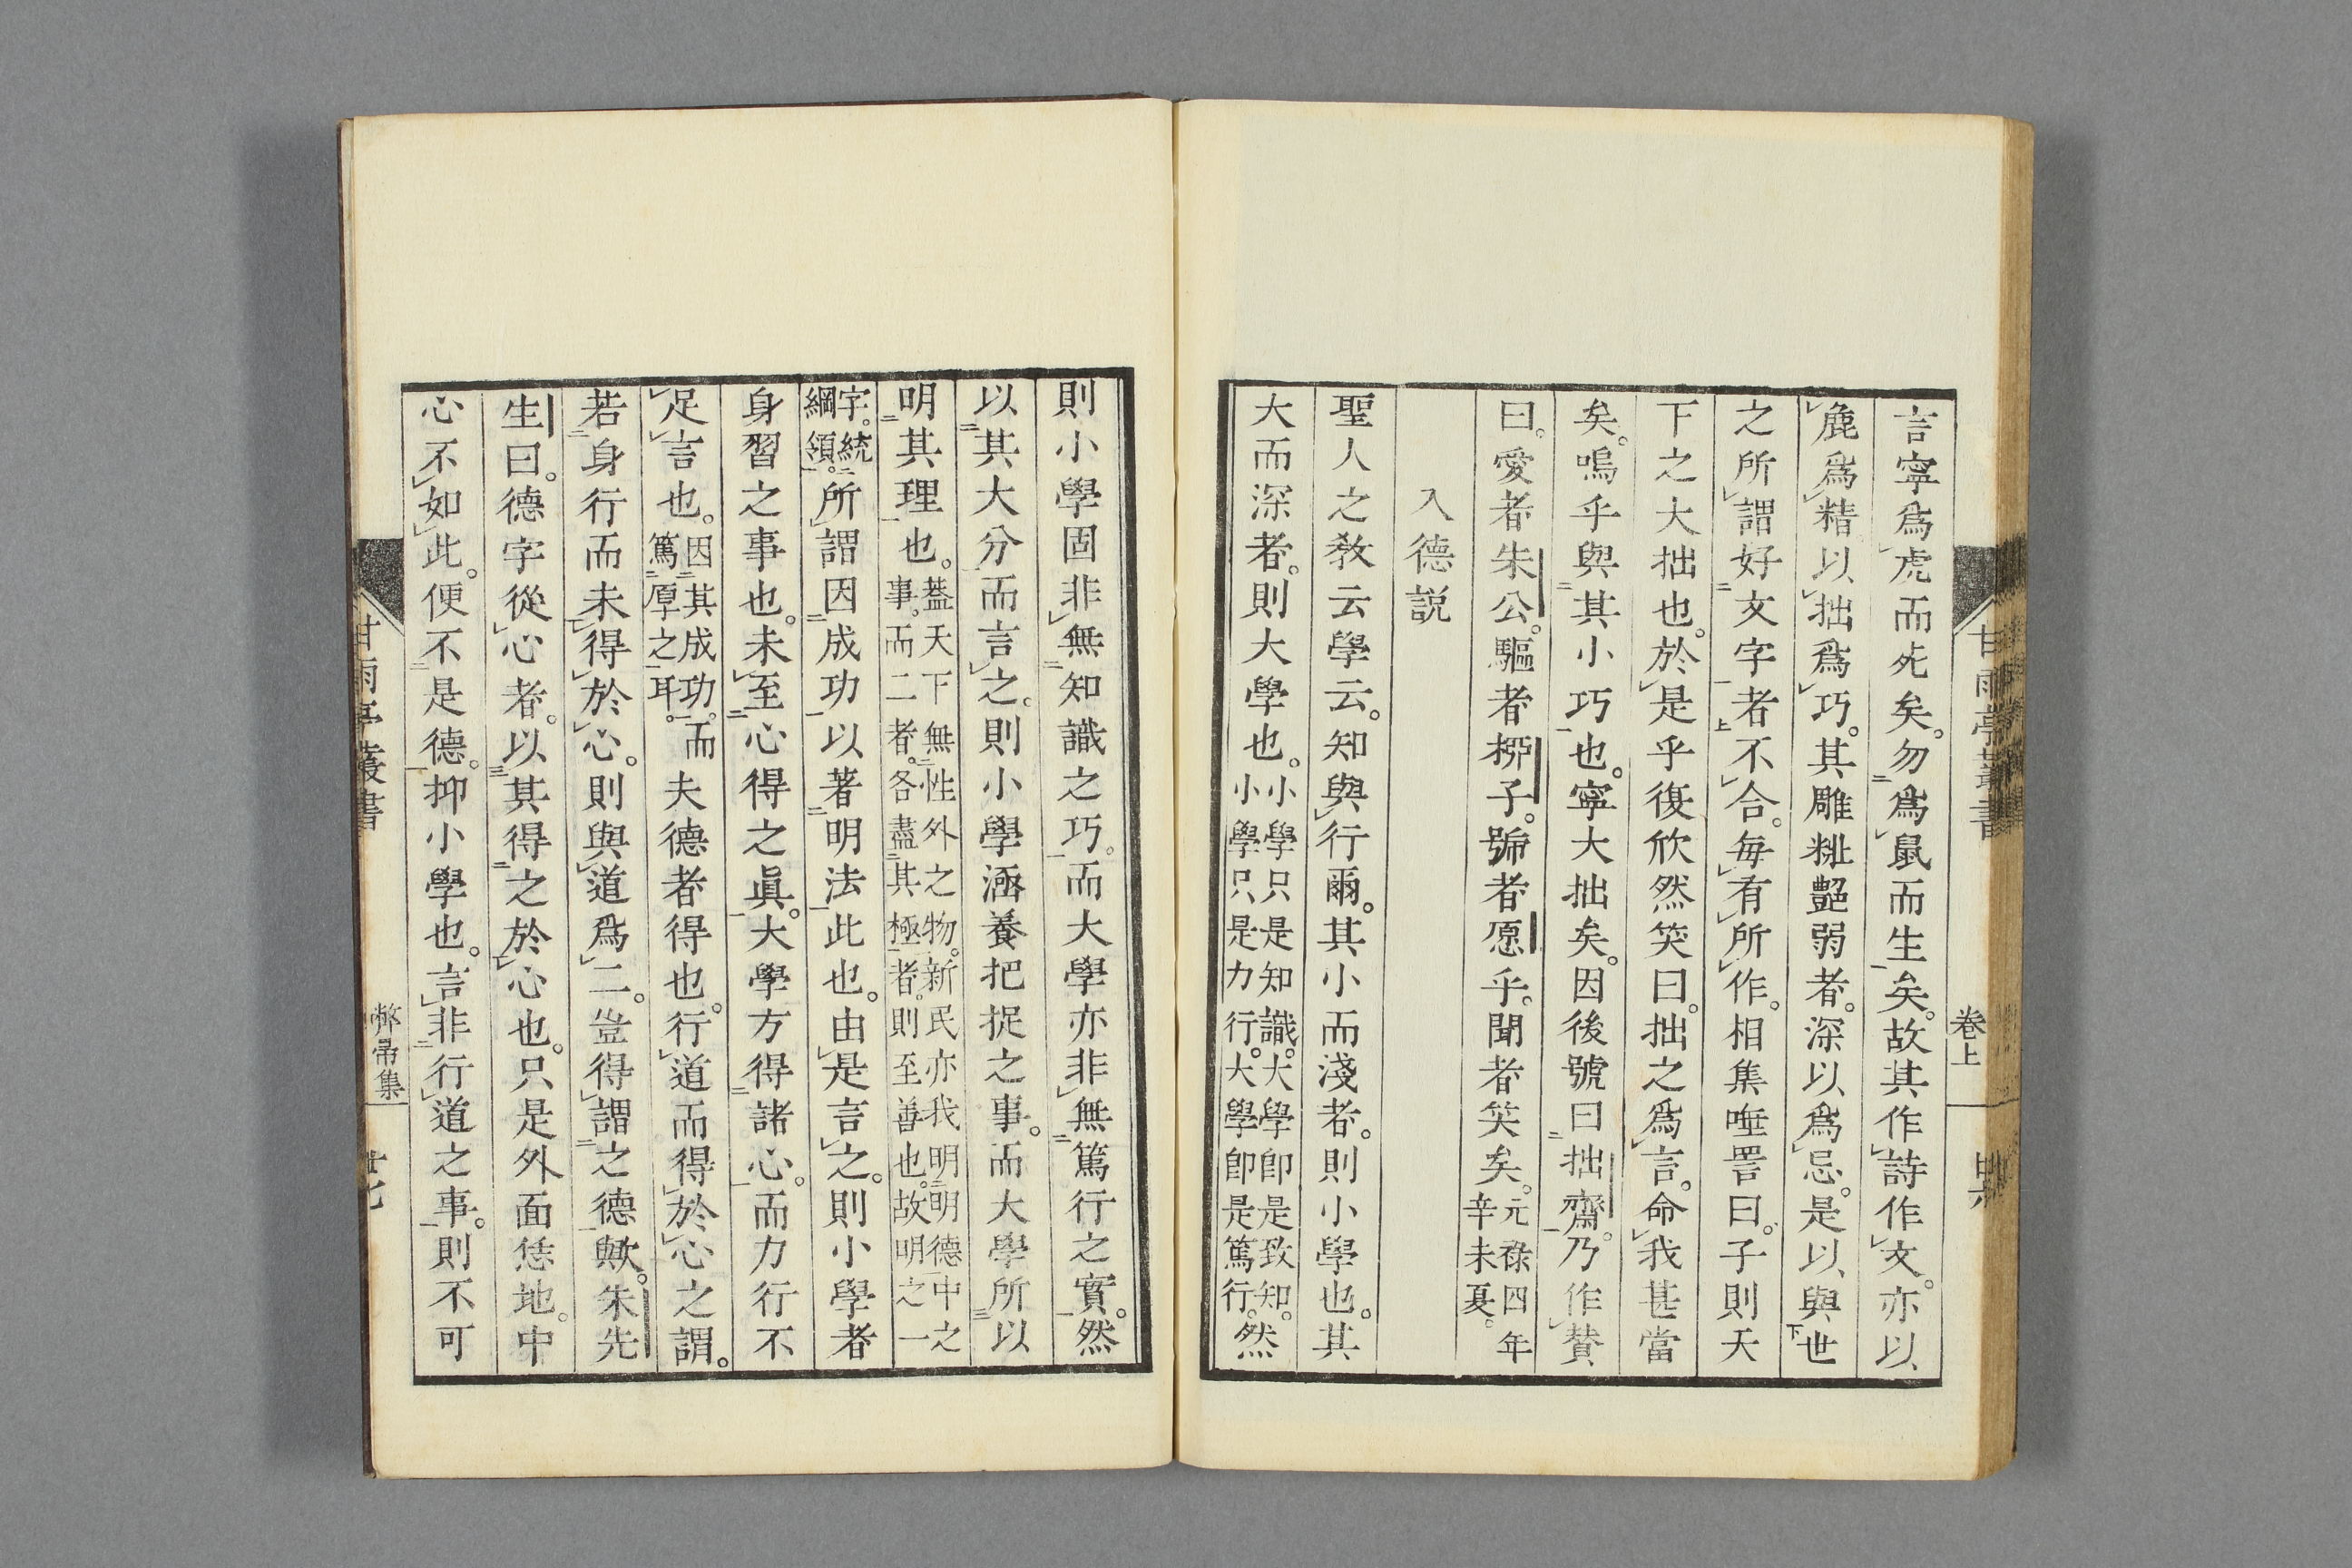 言寧爲虎而死矣。勿爲鼠而生矣。故其作詩作文。亦以
麁爲精以拙爲巧。其雕粃艷弱者。深以爲忌。是以與世
之所謂好文字者不合。每有所作。相集唾詈曰。子則天
下之大拙也。於是乎復欣然笑曰。拙之爲言。命我甚當
矣。嗚乎與其小巧也。寧大拙矣。因後號曰拙齋。乃作贊
曰。愛者朱公。驅者柳子。號者愿乎。聞者笑矣。元祿四年辛未夏。
入德説
聖人之敎云學云。知與行爾。其小而淺者。則小學也。其
大而深者。則大學也。小學只是知識。大學卽是致知。小學只是力行。大學卽是篤行。然
甘雨亭叢書
卷上
則小學固非無知識之巧。而大學亦非無篤行之實。然
以其大分而言之。則小學涵養把捉之事。而大學所以
明其理也。蓋天下無性外之物。新民亦我明明德中之一事。而二者。各盡其極者。則至善也。故明之一
字。統綱領。所謂因成功以著明法此也。由是言之。則小學者
身習之事也。未至心得之眞。大學方得諸心。而力行不
足言也。因其成功。而篤厚之耳。夫德者得也。行道而得於心之謂。
若身行而未得於心。則與道爲二。豈得謂之德歟。朱先
生曰。德字從心者。以其得之於心也。只是外面恁地。中
心不如此。便不是德。抑小學也。言非行道之事。則不可
甘雨亭叢書
弊帚集
廿七